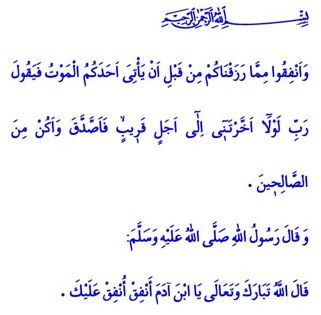 بِسْمِ اللهِ الرَّحْمٰنِ الرَّحِيمِ
وَاَنْفِقُوا مِمَّا رَزَقْنَاكُمْ مِنْ قَبْلِ اَنْ يَأْتِىَ اَحَدَكُمُ الْمَوْتُ فَيَقُولَ
رَبِّ لَوْلَٓا اَخَّرْتَنٖٓى اِلٰٓى اَجَلٍ قَرٖيبٍۙ فَاَصَّدَّقَ وَاَكُنْ مِنَ
الصَّالِحٖينَ .
وَ قَالَ رَسُولُ اللهِ صَلَّى اللهُ عَلَيْهِ وَسَلَّمَ:
قَالَ اللَّهُ تَبَارَكَ وَتَعَالَى يَا ابْنَ آدَمَ أَنْفِقْ أُنْفِقْ عَلَيْكَ .